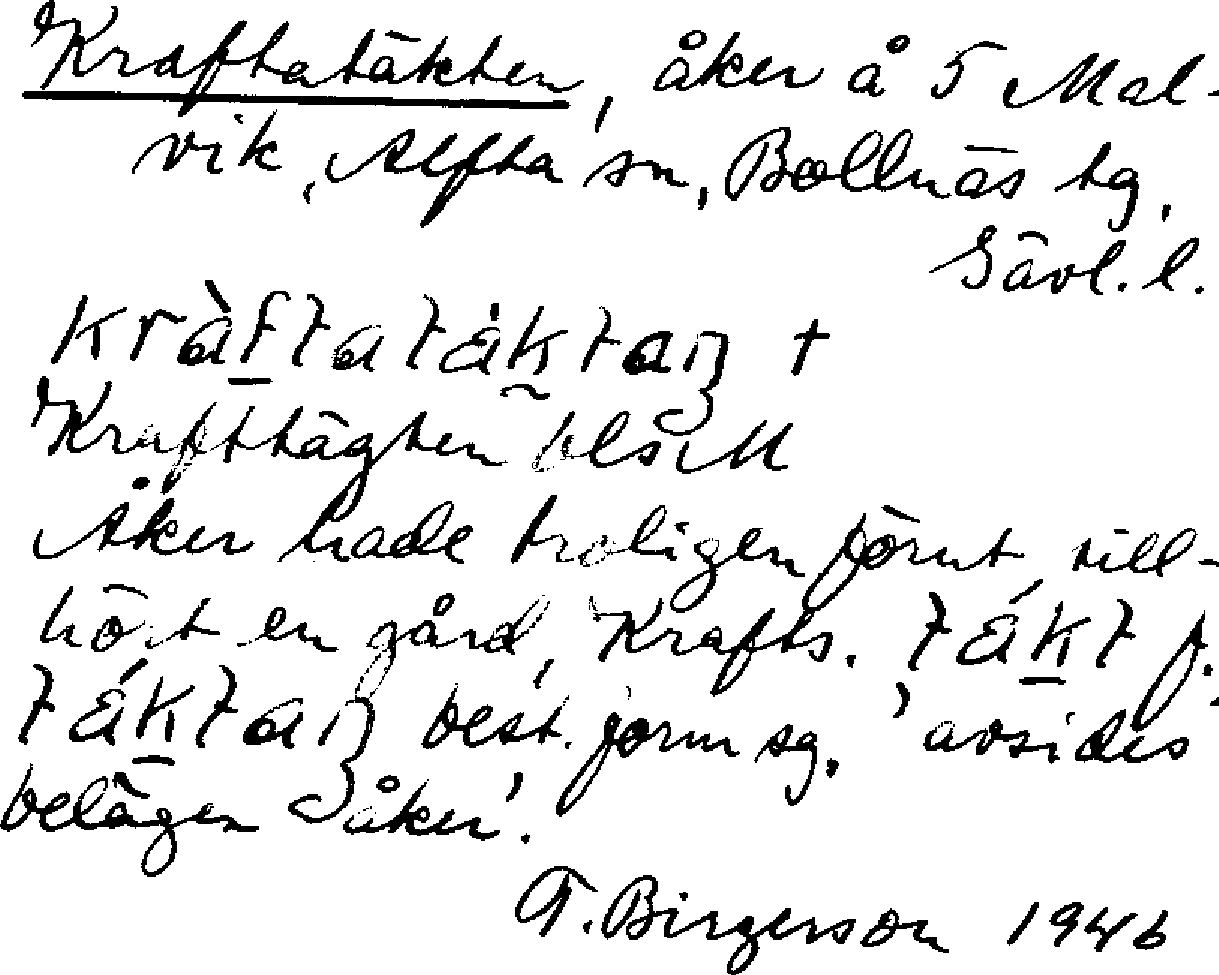 Kraftatäkten, åker å 5 Mal-
vik, Alfta sn, Bollnäs tg,
Gävl. l.
kràftatáktaŋ +
Krafttägten blS M
Åker hade troligen förut till-
hört en gård, Krafts. tákt f.
táktaŋ best. form sg. 'avsides
belägen åker'.
T. Birgerson 1946